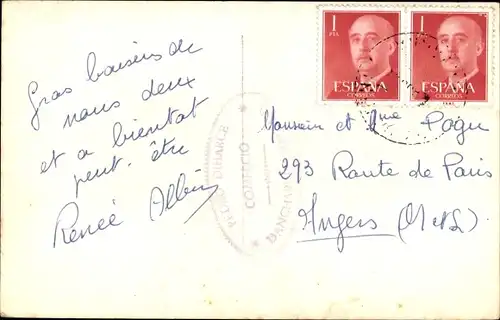 Gros baisers de
nous deux
et a bientot
peut-être
Renée
1
PTA
ESPAÑA
CORREOS
1
PTA
ESPAÑA
CORREOS
Monsieur et Mme
293 Route de Paris
Angers (M&L)
COMERCIO